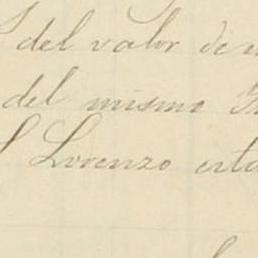 del valor de
del mismo
Lorenzo esta